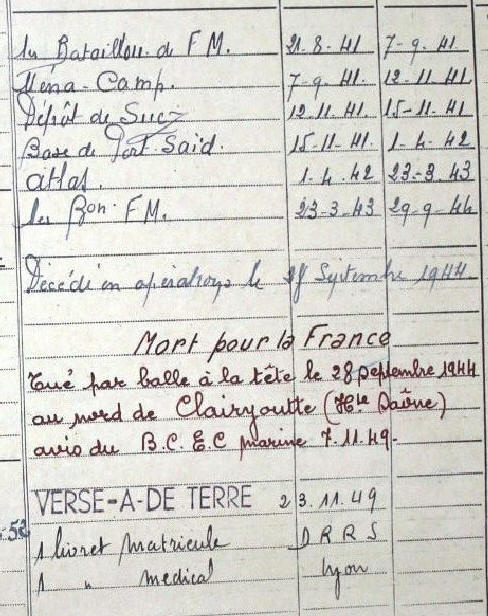 1er Bataillon de F M. 21-8-41 7-9-41
Héna-Camp. 7-9-41. 12-11-41
Dépôt de Suez 12-11-41. 15-11-41
Base de Port Saïd. 15-11-41. 1-4-42
Atlas. 1-4-42 23-3-43
1er Bon. FM. 23-3-43 29-9-44
Décédé en opérations le Septembre 1944
Mort pour la France
Tué par balle à la tête le 28 Septembre 1944
au nord de Clairgoutte (Hte Saône)
avis du B.C.E.C marine 7.11.49-
VERSÉ-A-DE TERRE 23.11.49
1 livret Matricule D R R S
1 " medical Lyon